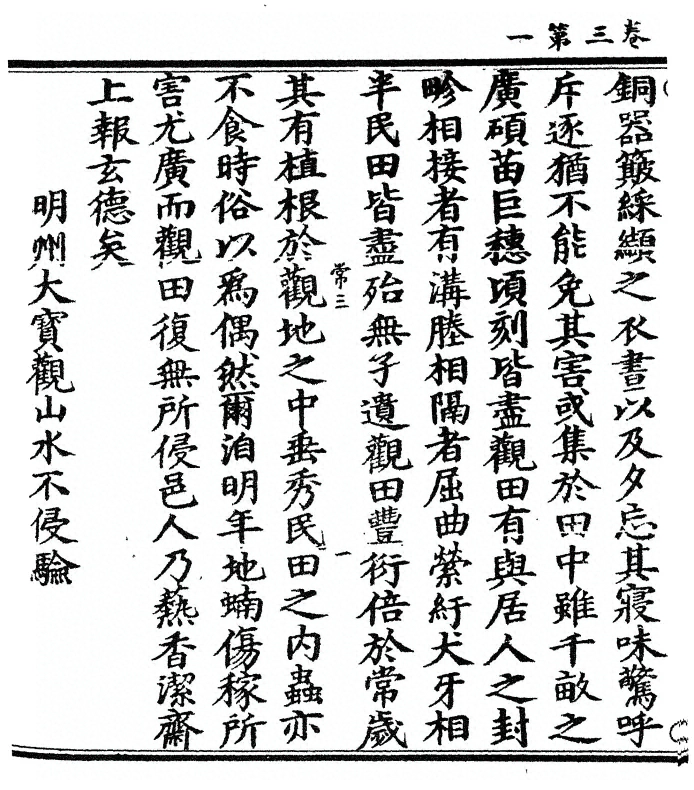 卷三第一
銅器簸綵纈之衣晝以及夕忘其寢味驚呼
斥逐猶不能免其害或集於田中雖千畝之
廣碩苗巨穗頃刻皆盡觀田有與居人之封
畛相接者有溝塍相隔者屈曲縈紆犬牙相
半民田皆盡殆無子遺觀田豐衍倍於常歲
其有植根於觀地之中垂秀民田之内蟲亦
常三
不食時俗以爲偶然爾洎明年地蝻傷稼所
害尤廣而觀田復無所侵邑人乃爇香潔齋
上報玄德矣
明州大寶觀山水不侵驗